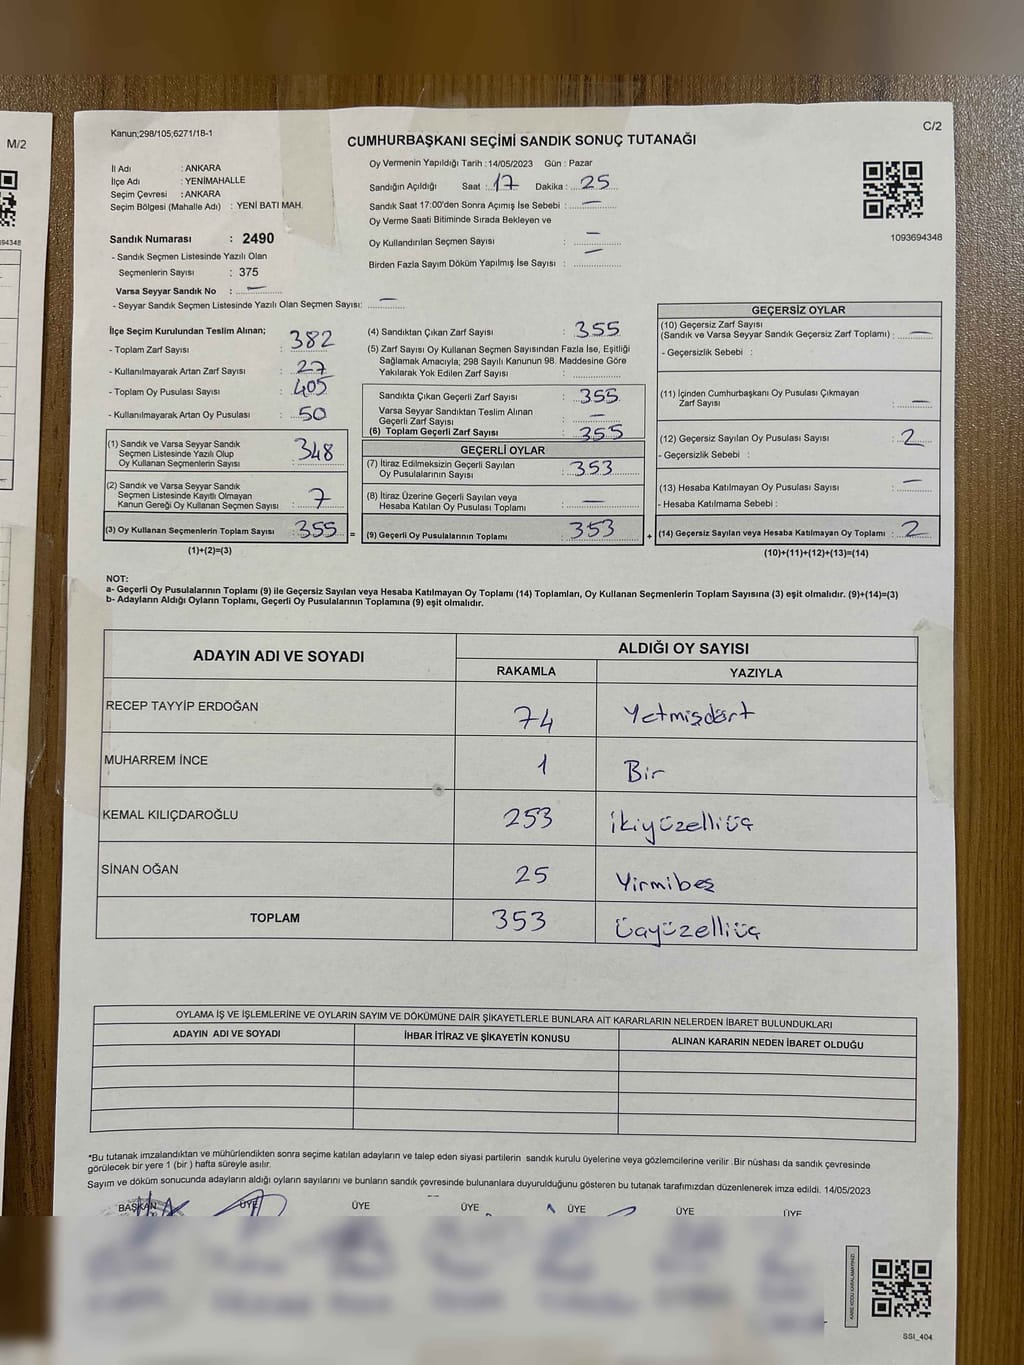 M/2
Kanun;298/105;6271/18-1
C/2
CUMHURBAŞKANI SEÇİMİ SANDIK SONUÇ TUTANAĞI
İl Adı : ANKARA
İlçe Adı : YENİMAHALLE
Seçim Çevresi : ANKARA
Seçim Bölgesi (Mahalle Adı) : YENİ BATI MAH.
Oy Vermenin Yapıldığı Tarih : 14/05/2023 Gün : Pazar
Sandığın Açıldığı Saat : 17 Dakika : 25
Sandık Saat 17:00'den Sonra Açımış İse Sebebi : —
Oy Verme Saati Bitiminde Sırada Bekleyen ve
Oy Kullandırılan Seçmen Sayısı : —
Birden Fazla Sayım Döküm Yapılmış İse Sayısı : —
1093694348
94348
Sandık Numarası : 2490
- Sandık Seçmen Listesinde Yazılı Olan
Seçmenlerin Sayısı : 375
Varsa Seyyar Sandık No : —
- Seyyar Sandık Seçmen Listesinde Yazılı Olan Seçmen Sayısı: —
İlçe Seçim Kurulundan Teslim Alınan;
- Toplam Zarf Sayısı : 382
- Kullanılmayarak Artan Zarf Sayısı : 27
- Toplam Oy Pusulası Sayısı : 405
- Kullanılmayarak Artan Oy Pusulası : 50
(1) Sandık ve Varsa Seyyar Sandık
Seçmen Listesinde Yazılı Olup
Oy Kullanan Seçmenlerin Sayısı : 348
(2) Sandık ve Varsa Seyyar Sandık
Seçmen Listesinde Kayıtlı Olmayan
Kanun Gereği Oy Kullanan Seçmen Sayısı : 7
(3) Oy Kullanan Seçmenlerin Toplam Sayısı : 355 =
(1)+(2)=(3)
(4) Sandıktan Çıkan Zarf Sayısı : 355
(5) Zarf Sayısı Oy Kullanan Seçmen Sayısından Fazla İse, Eşitliği
Sağlamak Amacıyla; 298 Sayılı Kanunun 98. Maddesine Göre
Yakılarak Yok Edilen Zarf Sayısı :
Sandıkta Çıkan Geçerli Zarf Sayısı : 355
Varsa Seyyar Sandıktan Teslim Alınan
Geçerli Zarf Sayısı : —
(6) Toplam Geçerli Zarf Sayısı : 355
GEÇERLİ OYLAR
(7) İtiraz Edilmeksizin Geçerli Sayılan
Oy Pusulalarının Sayısı : 353
(8) İtiraz Üzerine Geçerli Sayılan veya
Hesaba Katılan Oy Pusulası Toplamı : —
(9) Geçerli Oy Pusulalarının Toplamı : 353 +
GEÇERSİZ OYLAR
(10) Geçersiz Zarf Sayısı
(Sandık ve Varsa Seyyar Sandık Geçersiz Zarf Toplamı) : —
- Geçersizlik Sebebi :
(11) İçinden Cumhurbaşkanı Oy Pusulası Çıkmayan
Zarf Sayısı : —
(12) Geçersiz Sayılan Oy Pusulası Sayısı : 2
- Geçersizlik Sebebi :
(13) Hesaba Katılmayan Oy Pusulası Sayısı : —
- Hesaba Katılmama Sebebi :
(14) Geçersiz Sayılan veya Hesaba Katılmayan Oy Toplamı : 2
(10)+(11)+(12)+(13)=(14)
NOT:
a- Geçerli Oy Pusulalarının Toplamı (9) ile Geçersiz Sayılan veya Hesaba Katılmayan Oy Toplamı (14) Toplamları, Oy Kullanan Seçmenlerin Toplam Sayısına (3) eşit olmalıdır. (9)+(14)=(3)
b- Adayların Aldığı Oyların Toplamı, Geçerli Oy Pusulalarının Toplamına (9) eşit olmalıdır.
ADAYIN ADI VE SOYADI ALDIĞI OY SAYISI
RAKAMLA YAZIYLA
RECEP TAYYİP ERDOĞAN 74 Yetmişdört
MUHARREM İNCE 1 Bir
KEMAL KILIÇDAROĞLU 253 İkiyüzelliüç
SİNAN OĞAN 25 Yirmibeş
TOPLAM 353 Üçyüzelliüç
OYLAMA İŞ VE İŞLEMLERİNE VE OYLARIN SAYIM VE DÖKÜMÜNE DAİR ŞİKAYETLERLE BUNLARA AİT KARARLARIN NELERDEN İBARET BULUNDUKLARI
ADAYIN ADI VE SOYADI İHBAR İTİRAZ VE ŞİKAYETİN KONUSU ALINAN KARARIN NEDEN İBARET OLDUĞU
*Bu tutanak imzalandıktan ve mühürlendikten sonra seçime katılan adayların ve talep eden siyasi partilerin sandık kurulu üyelerine veya gözlemcilerine verilir .Bir nüshası da sandık çevresinde
görülecek bir yere 1 (bir ) hafta süreyle asılır.
Sayım ve döküm sonucunda adayların aldığı oyların sayılarını ve bunların sandık çevresinde bulunanlara duyurulduğunu gösteren bu tutanak tarafımızdan düzenlenerek imza edildi. 14/05/2023
BAŞKAN ÜYE ÜYE ÜYE ÜYE ÜYE ÜYE
KARE KODU KARALAMAYINIZ!
SSI_404